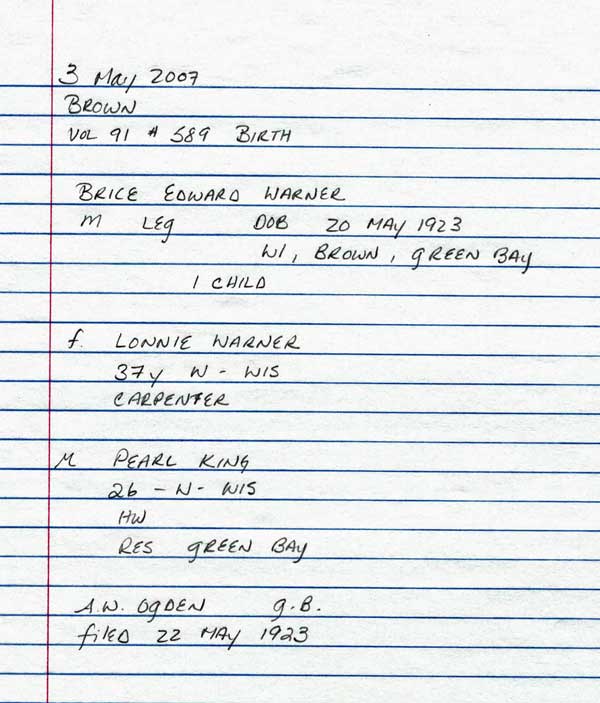 3 May 2007
BROWN
VOL 91 # 589 BIRTH
BRICE EDWARD WARNER
M LEG DOB 20 MAY 1923
WI, BROWN, GREEN BAY
1 CHILD
f. LONNIE WARNER
37y W - WIS
CARPENTER
M PEARL KING
26 - W - WIS
HW
RES GREEN BAY
A.W. OGDEN G.B.
filed 22 MAY 1923